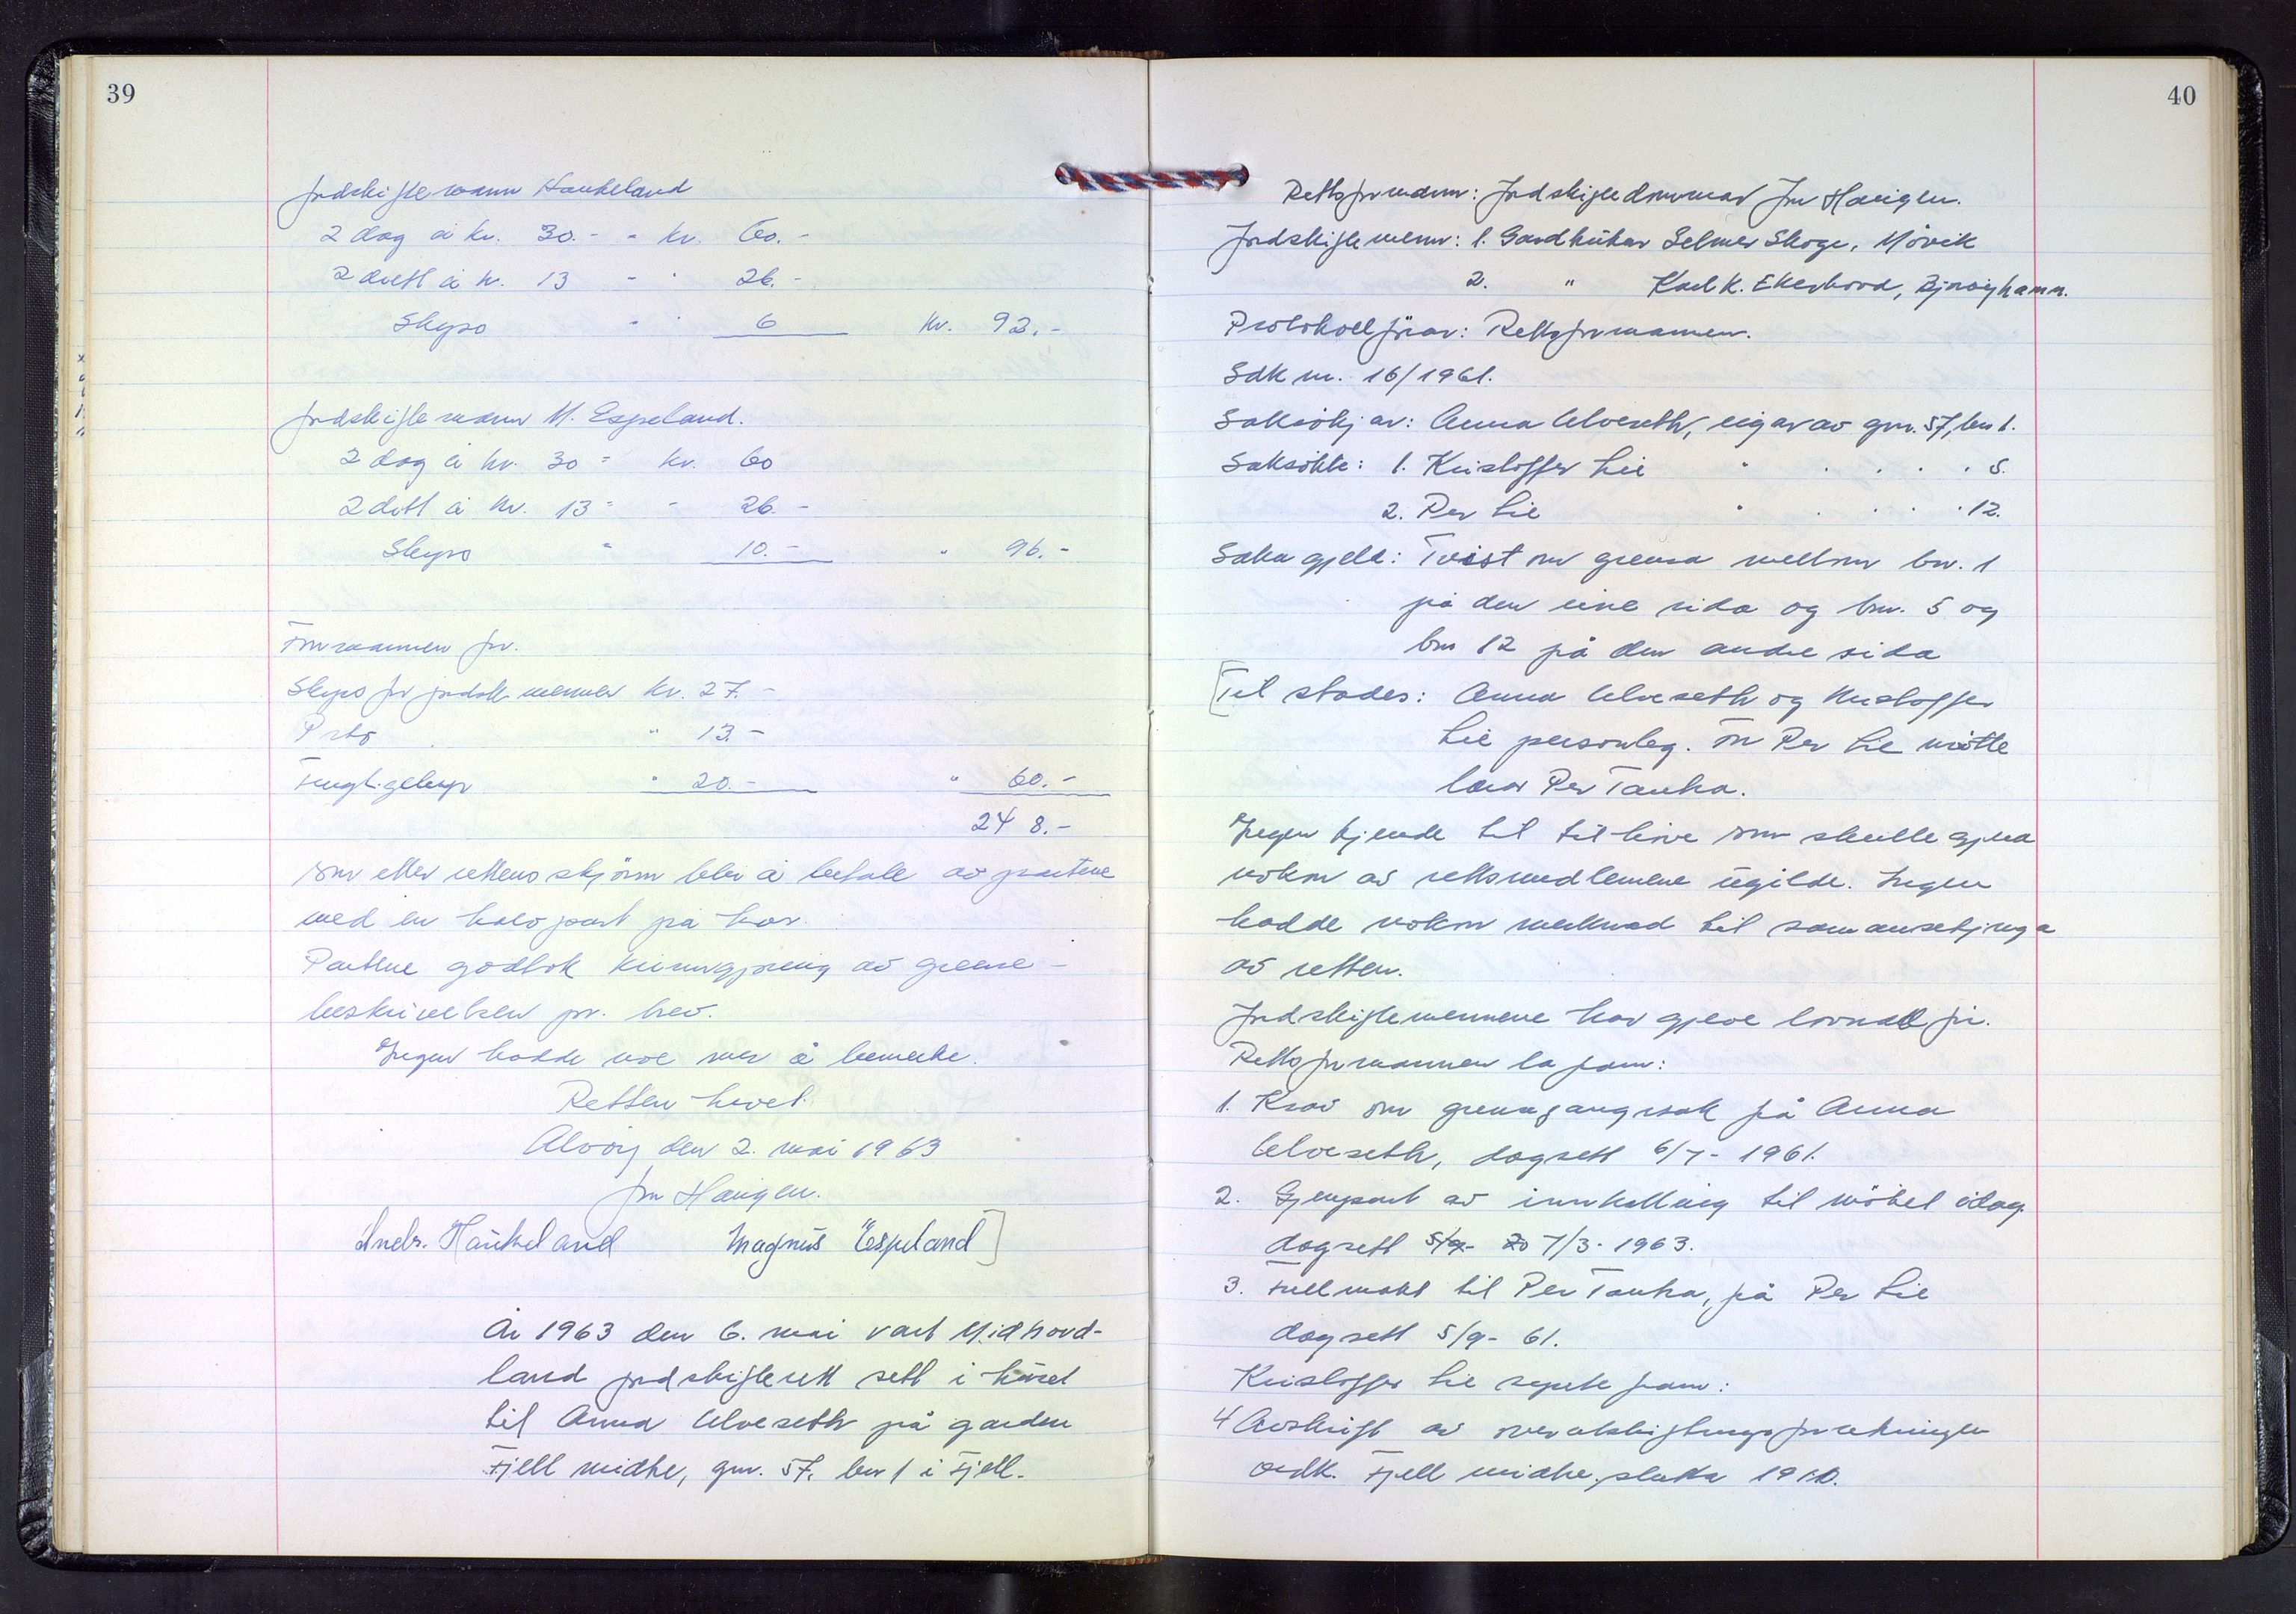 39
Jordskiftemann Haukeland
2 dag á kr. 30.- = kr. 60.-
2 diett á kr. 13 - " 26.-
Skyss " 6 kr. 92.-
Jordskiftemann M. Espeland.
2 dag á kr. 30 = kr. 60
2 diett á kr. 13 = - 26.-
Skyss " 10.- " 96.-
Formannen for.
Skyss for jordsk. menner kr. 27.-
Porto " 13.-
" 20.- " 60.-
248.-
som etter rettens skjönn blir å betale av partene
med en halvpart på hver.
Partene godtok kunngjøring av grense-
beskrivelsen pr. brev.
Ingen hadde noe mer å bemerke.
Retten hevet.
Alvöy den 2. mai 1963
Jon Haugen.
Andr. Haukeland Magnus Espeland]
År 1963 den 6. mai vart Midhord-
land jordskifterett sett i huset
til Anna Ulveseth på garden
Fjell midtre, gnr. 57, bnr 1 i Fjell.
40
Rettsformann: Jordskiftedommar Jon Haugen.
Jordskiftemenn: 1. Gardbrukar Selmer Skoge, Mövik
2. " Karl K. Ekerhovd, Bjoröyhamn.
Protokollförar: Rettsformannen.
Sak nr. 16/1961.
Saksökjar: Anna Ulveseth, eigar av gnr. 57, bnr 1.
Saksökte: 1. Kristoffer Lie " . . . . 5.
2. Per Lie " . . . . 12.
Saka gjeld: Tvist om grensa mellom bnr. 1
på den eine sida og bnr. 5 og
bnr 12 på den andre sida
[Til stades: Anna Ulveseth og Kristoffer
Lie personleg. For Per Lie møtte
lærar Per Tanka.
Ingen kjende til tilhöve som skulle gjera
nokon av rettsmedlemene ugilde. Ingen
hadde nokon merknad til samansetjinga
av retten.
Jordskiftemennene har gjeve lovnad för.
Rettsformannen la fram:
1. Krav om grensegangssak på Anna
Ulveseth, dagsett 6/7- 1961.
2. Gjenpart av innkalling til mötet idag
dagsett 5/9- 20 7/3- 1963.
3. Fullmakt til Per Tanka, på Per Lie
dagsett 5/9- 61.
Kristoffer Lie synte fram:
4 Avskrift av overutskiftingsforretningen
over Fjell midtre slutta 1910.